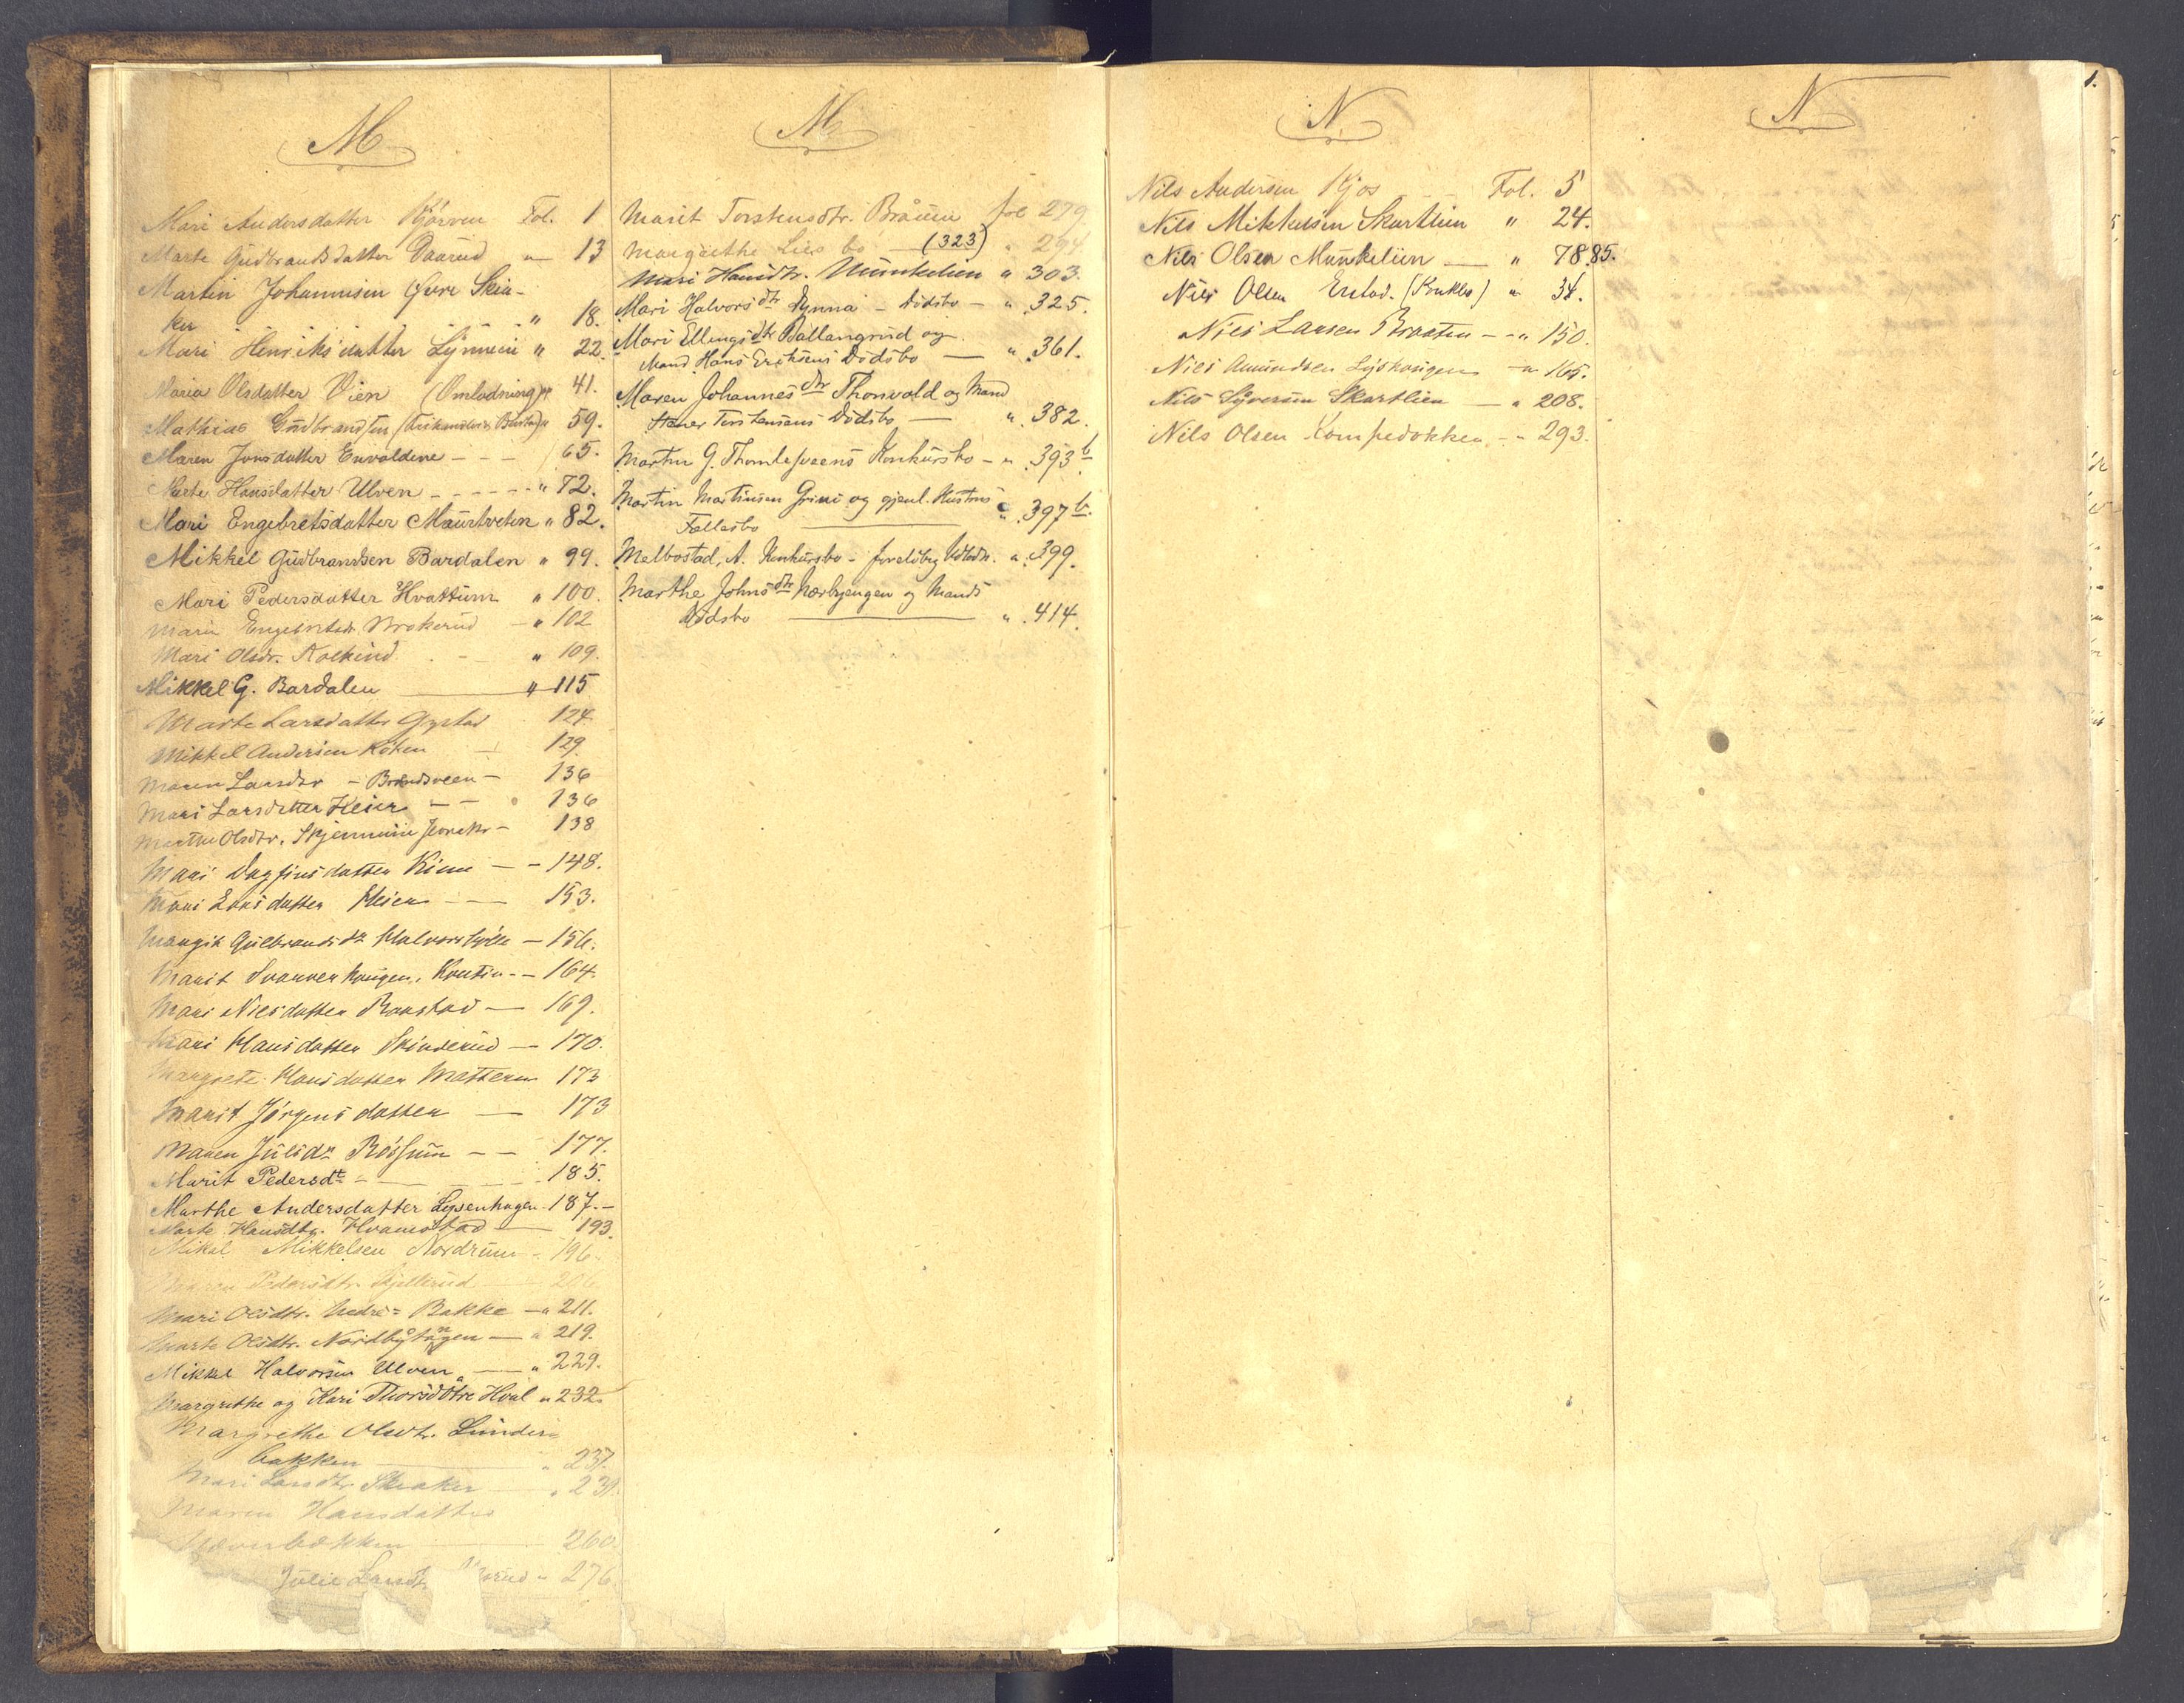 M
Mari Andersdatter Kjørven Fol. 1
Marte Gudbrandsdatter Daarud " 13
Martin Johannesen Øvre Skia-
ker " 18.
Mari Henriksdatter Lynnein " 22.
Maria Olsdatter Vien (Omlodning) " 41.
Mathias Gudbrandsen 59.
Maren Jonsdatter Envoldene - - - 65.
Marte Hansdatter Ulven - - - - - " 72.
Mari Engebretsdatter Maurtveten " 82.
Mikkel Gudbrandsen Bardalen " 99.
Mari Pedersdatter Hvattum " 100.
Maria Engebretsdr Brokerud - " 102
Mari Olsdr. Rolkind - " 109.
Mikkel G. Bardalen — " 115
Marte Larsdatter Gystad 124
Mikkel Andersen Koken - 129
Maren Larsdtr - Brandsveen - 136
Mari Larsdatter Heier - - 136
Marthe Olsdtr. Skjennum 138
Mari Dagfinsdatter Kinn - - 148.
Mari Larsdatter Heier - — 153.
Margit Gulbrandsdr Halvorshylle - 156.
Marit Svarvenhaugen, - - 164.
Mari Nilsdatter Raastad — 169.
Mari Hansdatter Skinderud — 170.
Margrete Hansdatter 173
Marit Jørgensdatter — 173
Maren Julsdr Røssum - - 177.
Marit Pedersdtr - — 185.
Marthe Andersdatter Lysenhagen - 187. -
Marte Hansdtr. Hvamstad — 193.
Mikal Mikkelsen Nordrum - 196.
Maren Pedersdtr. Skjellerud — 206
Mari Olsdtr. Nedre= Bakke — " 211.
Marte Olsdtr. Nordbytangen — " 219.
Mikkel Halvorsen Ulven — " 229.
Margrethe og Kari Thorsdøtre Hval " 232.
Margrethe Olsdtr. Lunder=
bakken — " 237.
Mari Larsdtr. Skiaker — " 239.
Maren Hansdatter
Næverbækken — 260.
Julie Larsdtr. " 276.
M
Marit Torstensdtr. Braaten fol 279
Margrethe Lies bo — (323) " 294
Mari Hansdtr. Munkelien " 303.
Mari Halvorsdtr Dynna - Dødsbo - " 325.
Mari Ellingsdtr Ballangrud og
Mand Hans Eriksens Dødsbo — " 361.
Maren Johannesdtr Thonvold og Mand
Stener Torstensens Dødsbo — " 382.
Martin G. Thomlesveens Konkursbo - " 393 b
Martin Martinsen Grini og gjenl. Hustrus
Fællesbo — " 397 b.
Melbostad, A. Konkursbo - foreløbig Udlodn. " 399.
Marthe Johnsdtr Nærbyengen og Mands
Dødsbo — " 414.
N
Nils Andersen Kjos - - Fol. 5
Nils Mikkelsen Skartlien " 24.
Nils Olsen Munkelien — " 78.85.
Nils Olsen Erstad. " 34.
Nils Larsen Braaten - - " 150.
Nils Amundsen Lyskaugen - " 165.
Nils Syversen Skartlien — " 208.
Nils Olsen Kompedokken - " 293.
N
1.